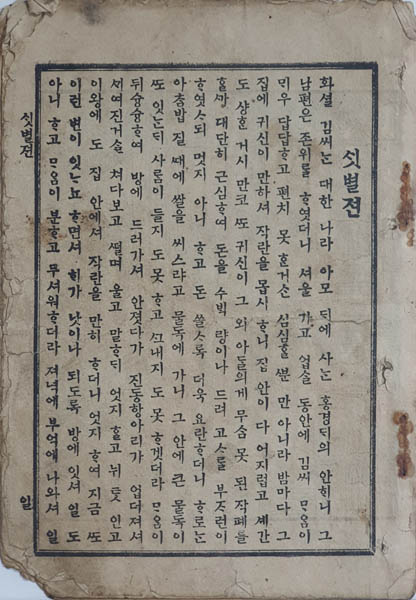 ᄉᆡᆺ별젼
화셜 김씨ᄂᆞᆫ 대한 나라 아모 ᄃᆡ에 사ᄂᆞᆫ 홍령ᄃᆡ의 안ᄒᆡ니 그
남편은 존위를 ᄒᆞ엿더니 셔울 가고 업슬 동안에 김씨 ᄆᆞᄋᆞᆷ이
ᄆᆡ우 답답ᄒᆞ고 편치 못 ᄒᆞᆫ거슨 심심ᄒᆞᆯ ᄲᅮᆫ 만 아니라 밤마다 그
집에 귀신이 만하셔 작란을 몹시 ᄒᆞ니 집 안이 다 어지럽고 셰간
도 샹ᄒᆞᆫ 거시 만코 ᄯᅩ 귀신이 그 외아ᄃᆞᆯ의게 무ᄉᆞᆷ 못 된 작폐를
ᄒᆞᆯ가 대단히 근심ᄒᆞ여 돈을 수ᄇᆡᆨ 량이나 드려 고ᄉᆞ를 부ᄌᆞ런이
ᄒᆞ엿ᄉᆞ되 멋지 아니 ᄒᆞ고 돈 쓸ᄉᆞ록 더욱 요란ᄒᆞ더니 ᄒᆞ로ᄂᆞᆫ
아ᄎᆞᆷ밥 질 ᄯᅢ에 쌀을 씨스랴고 물독에 가니 그 안에 큰 물독이
ᄯᅩ 잇ᄂᆞᆫᄃᆡ 사ᄅᆞᆷ이 들지도 못 ᄒᆞ고 ᄭᅳ내지도 못 ᄒᆞ겟더라 ᄆᆞᄋᆞᆷ이
뒤슝슝ᄒᆞ여 방에 드러가셔 안졋다가 진동항아리가 업더져셔
ᄶᆡ여진거슬 쳐다보고 썰며 울고 말ᄒᆞᄃᆡ 엇지 ᄒᆞᆯ고 뉘 ᄐᆞᆺ 인고
이왕에 도 집 안에셔 작란을 만히 ᄒᆞ더니 엇지 ᄒᆞ여 지금 ᄯᅩ
이런 변이 잇ᄂᆞ뇨 ᄒᆞ면셔 ᄒᆡ가 낫이나 되도록 방에 잇셔 일 도
아니 ᄒᆞ고 ᄆᆞᄋᆞᆷ이 분ᄒᆞ고 무셔워ᄒᆞ더라 져녁에 부억에 나와셔 일
ᄉᆡᆺ별젼
일